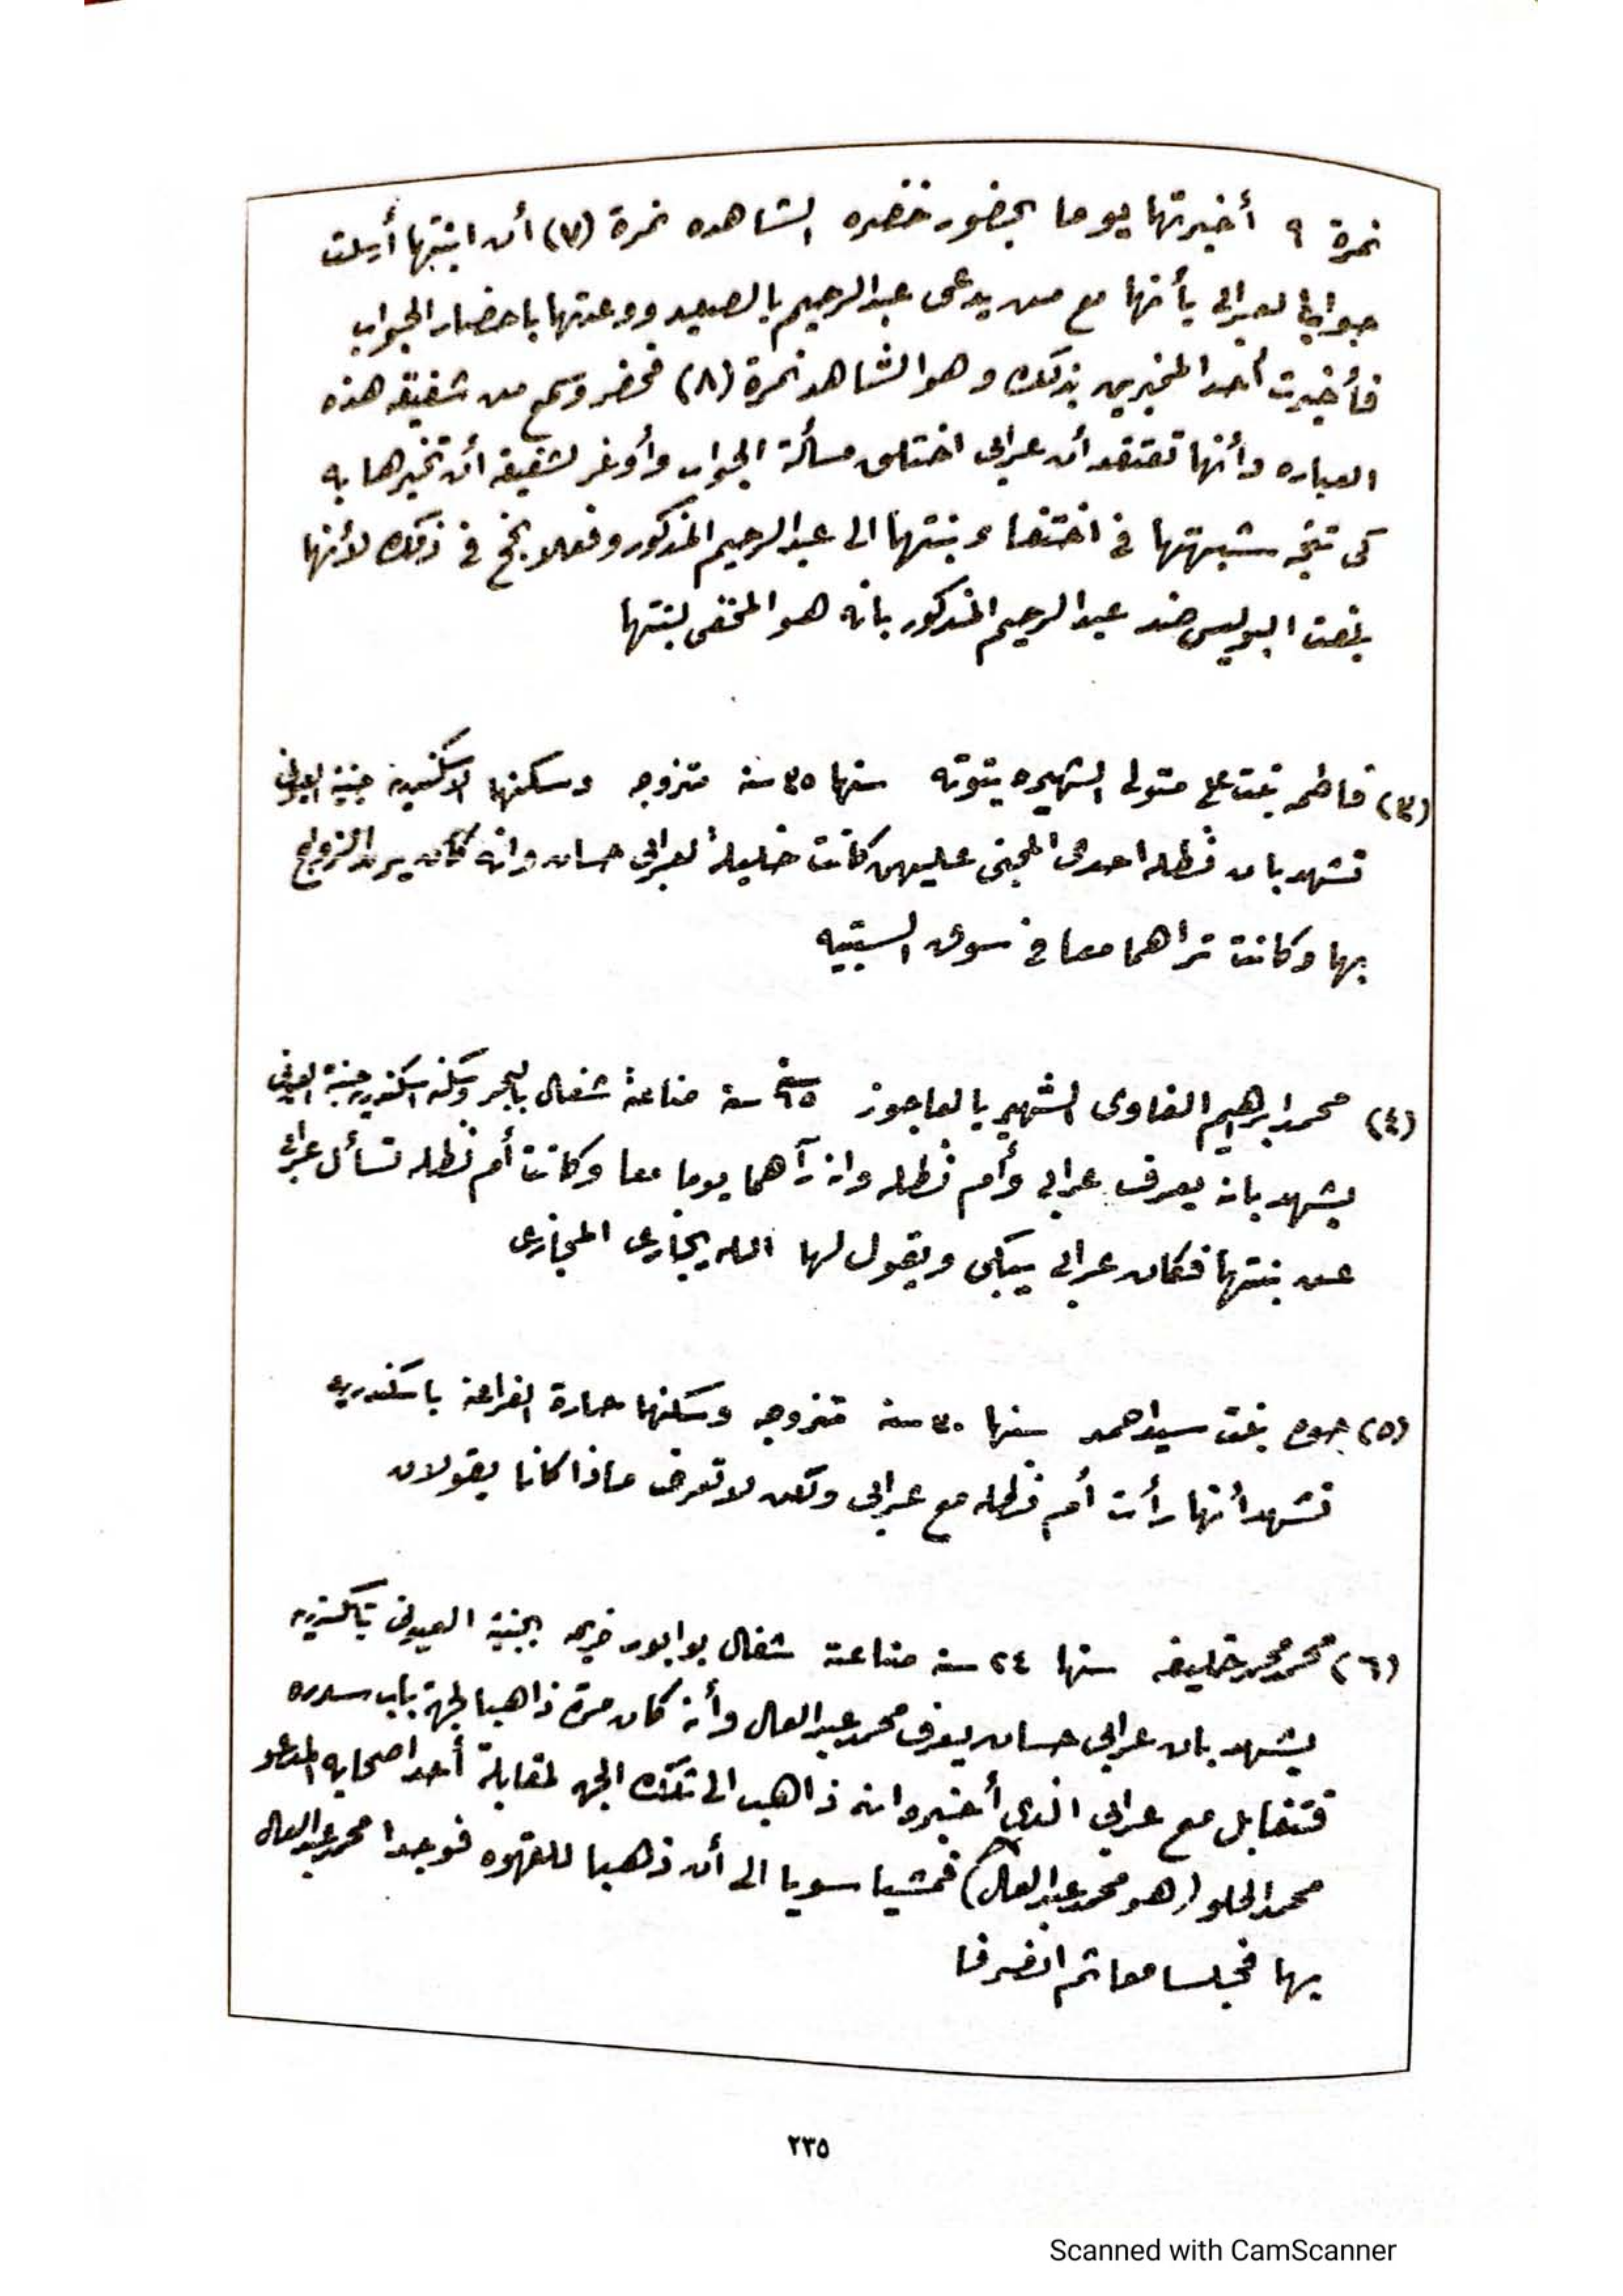 نمرة ٩ أخبرتها يوما بحضور خضره الشاهده نمرة (٧) أن ابنتها أرسلت
جوابا لعرابى بأنها مع من يدعى عبدالرحيم بالصعيد ووعدتها باحضار الجواب
فأخبرت أحد المخبرين بذلك وهو الشاهد نمرة (٨) فحضر وسمع من شفيقه هذه
العباره وأنها تعتقد أن عرابى اختلق مسألة الجواب وأوغر لشفيقه أن تخبرها به
كى تتجه شبهتها فى اختفاء بنتها الى عبدالرحيم المذكور وفعلا نجح فى ذلك لأنها
بلغت البوليس ضد عبدالرحيم المذكور بانه هو المخفى لبنتها
(٣) فاطمه بنت على متولى الشهيره بتوته سنها ٣٥ سنة متزوجه وسكنها الاسكندرية جنينة العيونى
تشهد بان نظله احدى المجنى عليهن كانت خليلة لعرابى حسان وانه كان يريد الزواج
بها وكانت تراهما معا فى سوق السبتيه
(٤) محمد ابراهيم الفاوى الشهير بالعاجوز سنه ٦٥ سنة صناعة شغال بالبحر وسكنه اسكندرية جنينة العيونى
يشهد بانه يعرف عرابى وأم نظله وانه رآهما يوما معا وكانت أم نظله تسأل عرابى
عن بنتها فكان عرابى يبكى ويقول لها الله يجازى المجازى
(٥) بنت سيد احمد سنها ٣٠ سنة متزوجه وسكنها حارة الفراهده باسكندريه
تشهد أنها رأت أم نظله مع عرابى ولكن لا تعرف ماذا كانا يقولان
(٦) محمد محمد خليفه سنها ٢٤ سنة صناعته شغال بوابور بجنينة العيونى باسكندريه
يشهد بان عرابى حسان يعرف محمد عبدالعال وأنه كان مرة ذاهبا لجهة باب سدره
فتقابل مع عرابى الذى أخبره انه ذاهب الى تلك الجهه لمقابلة أحد اصحابه المدعو
محمد الحلو (هو محمد عبدالعال) فمشيا سويا الى أن ذهبا للقهوه فوجدا محمد عبدالعال
بها فجلسا معا ثم انصرفا
٢٣٥
Scanned with CamScanner